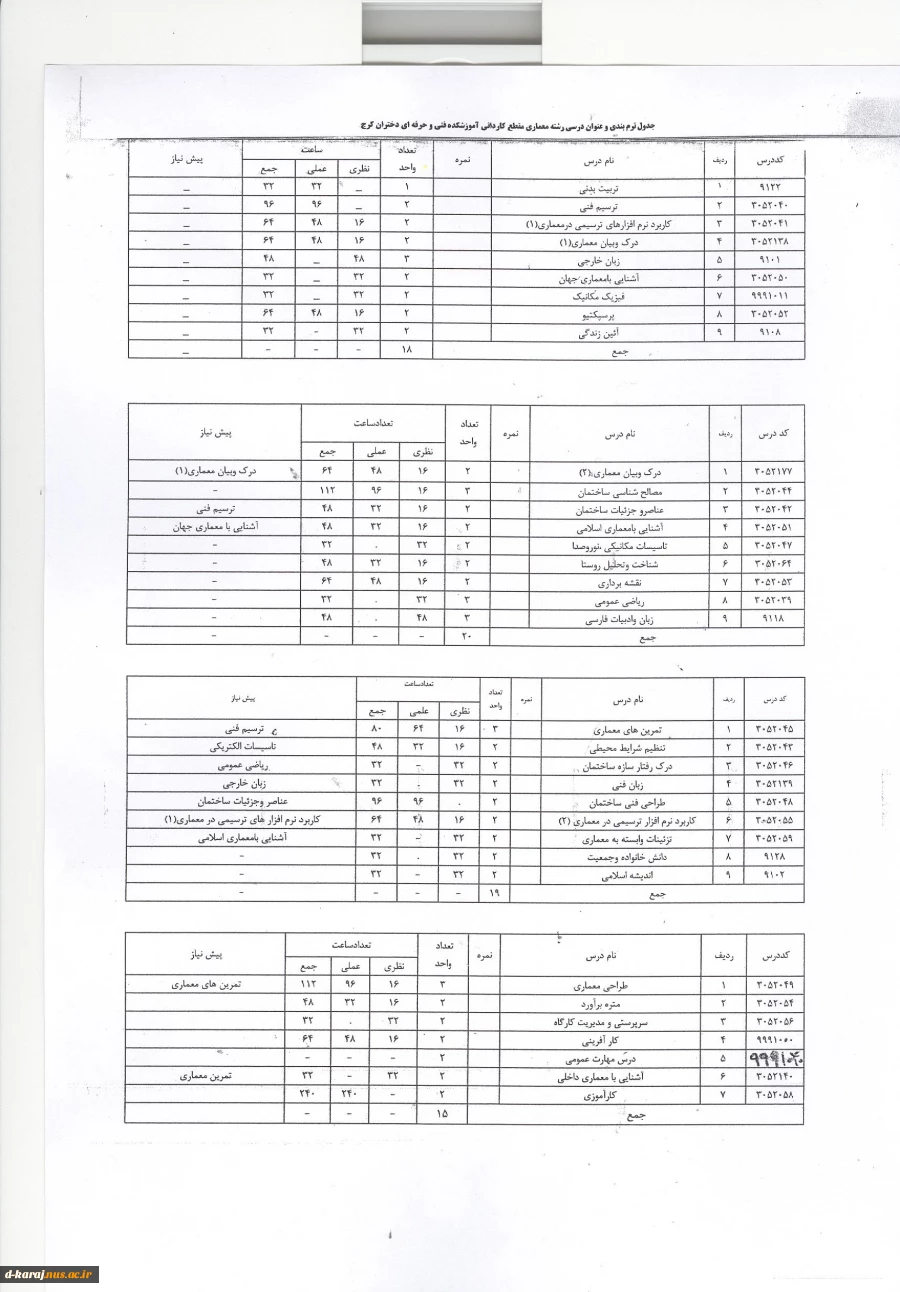 جدول ترم بندی و عنوان درسی رشته معماری مقطع کاردانی آموزشکده فنی و حرفه ای دختران کرج
کددرس ردیف نام درس نمره تعداد واحد ساعت پیش نیاز
نظری عملی جمع
۹۱۲۲ ۱ تربیت بدنی ۱ _ ۳۲ ۳۲ _
۳۰۵۲۰۴۰ ۲ ترسیم فنی ۲ _ ۹۶ ۹۶ _
۳۰۵۲۰۴۱ ۳ کاربرد نرم افزارهای ترسیمی درمعماری(۱) ۲ ۱۶ ۴۸ ۶۴ _
۳۰۵۲۱۳۸ ۴ درک وبیان معماری(۱) ۲ ۱۶ ۴۸ ۶۴ _
۹۱۰۱ ۵ زبان خارجی ۳ ۴۸ _ ۴۸ _
۳۰۵۲۰۵۰ ۶ آشنایی بامعماری جهان ۲ ۳۲ _ ۳۲ _
۹۹۹۱۰۱۱ ۷ فیزیک مکانیک ۲ ۳۲ _ ۳۲ _
۳۰۵۲۰۵۲ ۸ پرسپکتیو ۲ ۱۶ ۴۸ ۶۴ _
۹۱۰۸ ۹ آئین زندگی ۲ ۳۲ - ۳۲ _
جمع ۱۸ - - - _
کد درس ردیف نام درس نمره تعداد واحد تعدادساعت پیش نیاز
نظری عملی جمع
۳۰۵۲۱۷۷ ۱ درک وبیان معماری(۲) ۲ ۱۶ ۴۸ ۶۴ درک وبیان معماری(۱)
۳۰۵۲۰۴۴ ۲ مصالح شناسی ساختمان ۳ ۱۶ ۹۶ ۱۱۲ -
۳۰۵۲۰۴۲ ۳ عناصرو جزئیات ساختمان ۲ ۱۶ ۳۲ ۴۸ ترسیم فنی
۳۰۵۲۰۵۱ ۴ آشنایی بامعماری اسلامی ۲ ۱۶ ۳۲ ۴۸ آشنایی با معماری جهان
۳۰۵۲۰۴۷ ۵ تاسیسات مکانیکی ،نوروصدا ۲ ۳۲ . ۳۲ -
۳۰۵۲۰۶۴ ۶ شناخت وتحلیل روستا ۲ ۱۶ ۳۲ ۴۸ -
۳۰۵۲۰۵۳ ۷ نقشه برداری ۲ ۱۶ ۴۸ ۶۴ -
۳۰۵۲۰۳۹ ۸ ریاضی عمومی ۲ ۳۲ . ۳۲ -
۹۱۱۸ ۹ زبان وادبیات فارسی ۳ ۴۸ . ۴۸ -
جمع ۲۰ - - - -
کد درس ردیف نام درس نمره تعداد واحد تعدادساعت پیش نیاز
نظری علمی جمع
۳۰۵۲۰۴۵ ۱ تمرین های معماری ۳ ۱۶ ۶۴ ۸۰ ترسیم فنی
۳۰۵۲۰۴۳ ۲ تنظیم شرایط محیطی ۲ ۱۶ ۳۲ ۴۸ تاسیسات الکتریکی
۳۰۵۲۰۴۶ ۳ درک رفتار سازه ساختمان ۲ ۳۲ - ۳۲ ریاضی عمومی
۳۰۵۲۱۳۹ ۴ زبان فنی ۲ ۳۲ . ۳۲ زبان خارجی
۳۰۵۲۰۴۸ ۵ طراحی فنی ساختمان ۲ . ۹۶ ۹۶ عناصر وجزئیات ساختمان
۳۰۵۲۰۵۵ ۶ کاربرد نرم افزار ترسیمی در معماری (۲) ۲ ۱۶ ۴۸ ۶۴ کاربرد نرم افزار های ترسیمی در معماری(۱)
۳۰۵۲۰۵۹ ۷ تزئینات وابسته به معماری ۲ ۳۲ - ۳۲ آشنایی بامعماری اسلامی
۹۱۲۸ ۸ دانش خانواده وجمعیت ۲ ۳۲ . ۳۲ -
۹۱۰۲ ۹ اندیشه اسلامی ۲ ۳۲ - ۳۲ -
جمع ۱۹ - - - -
کددرس ردیف نام درس نمره تعداد واحد تعدادساعت پیش نیاز
نظری عملی جمع
۳۰۵۲۰۴۹ ۱ طراحی معماری ۳ ۱۶ ۹۶ ۱۱۲ تمرین های معماری
۳۰۵۲۰۵۴ ۲ متره برآورد ۲ ۱۶ ۳۲ ۴۸
۳۰۵۲۰۵۶ ۳ سرپرستی و مدیریت کارگاه ۲ ۳۲ . ۳۲
۴ کار آفرینی ۲ ۱۶ ۴۸ ۶۴
۵ درس مهارت عمومی ۲ - - -
۳۰۵۲۱۴۰ ۶ آشنایی با معماری داخلی ۲ ۳۲ - ۳۲ تمرین معماری
۳۰۵۲۰۵۸ ۷ کارآموزی ۲ - ۲۴۰ ۲۴۰
جمع ۱۵ - - -
d-karaj.nus.ac.ir